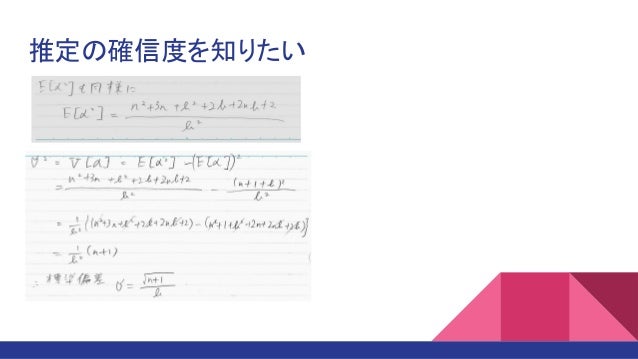 推定の確信度を知りたい
E[α²]も同様に
E[α²] = n²+3n+k²+2k+2nk+2 / k²
σ² = V[α] = E[α²] - (E[α])²
= n²+3n+k²+2k+2nk+2 / k² - (n+1+k)² / k²
= 1/k² {(n²+3n+k²+2k+2nk+2) - (n²+1+k²+2n+2nk+2k)}
= 1/k² (n+1)
∴ 標準偏差 σ = √n+1 / k